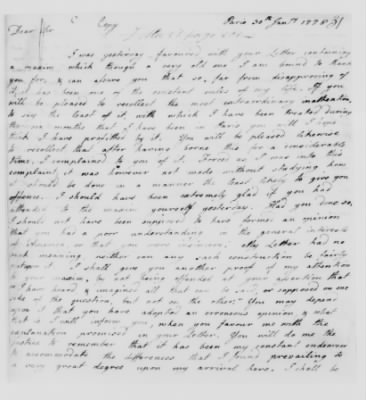 Copy Paris 30th Jany. 1778
Dear Sir
I was yesterday favoured with your Letter containing
a maxim which though a very old one I am bound to thank
you for, & can assure you that so, far from disapproving of
it, it has been one of the constant rules of my life. If you
will be pleased to recollect the most extraordinary inattention
to say the least of it, with which I have been treated during
the months that I have been in Paris you will I
think I have profited by it. You will be pleased likewise
to recollect that after having borne this for a considerable
time, I complained to you of it. Forced as I was into this
complaint, it was however not made without studying how
it should be done in a manner the least likely to give you
offence. I should have been extremely glad if you had
attended to the maxim yourself yesterday. Had you done so,
I should not have been supposed to have formed an opinion
that you had a poor understanding in the general interests
of America, or that you were My Letter had no
such meaning, neither can any such construction be fairly
put upon it. I shall give you another proof of my attention
to your maxim, by not being offended at your assertion that
I have heard & imagined all that can be said, or supposed on one
side of the question, but not on the other. You may depend
upon it that you have adopted an erroneous opinion, & what
that is I will inform you, when you favour me with the
explanation promised in your Letter. You will do me the
justice to remember that it has been my constant endeavour
to accommodate the differences that I found prevailing to
a very great degree upon my arrival here. I shall be